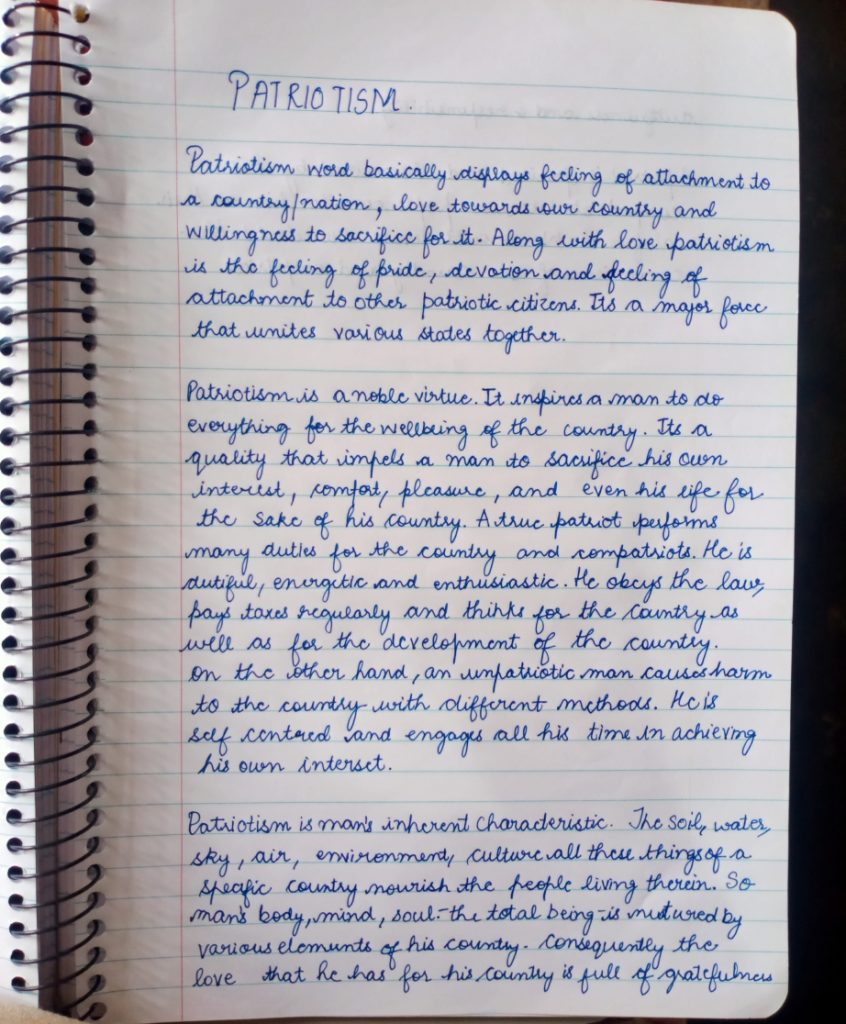 PATRIOTISM
Patriotism word basically displays feeling of attachment to
a country/nation, love towards our country and
willingness to sacrifice for it. Along with love patriotism
is the feeling of pride, devotion and feeling of
attachment to other patriotic citizens. Its a major force
that unites various states together.
Patriotism is a noble virtue. It inspires a man to do
everything for the wellbeing of the country. Its a
quality that impels a man to sacrifice his own
interest, comfort, pleasure, and even his life for
the sake of his country. A true patriot performs
many duties for the country and compatriots. He is
dutiful, energetic and enthusiastic. He obeys the law,
pays taxes regularly and thinks for the country as
well as for the development of the country.
On the other hand, an unpatriotic man causes harm
to the country with different methods. He is
self centred and engages all his time in achieving
his own interset.
Patriotism is man's inherent characteristic. The soil, water,
sky, air, environment, culture all these things of a
specific country nourish the people living therein. So
man's body, mind, soul-the total being-is nutured by
various elements of his country. Consequently the
love that he has for his country is full of gratefulness